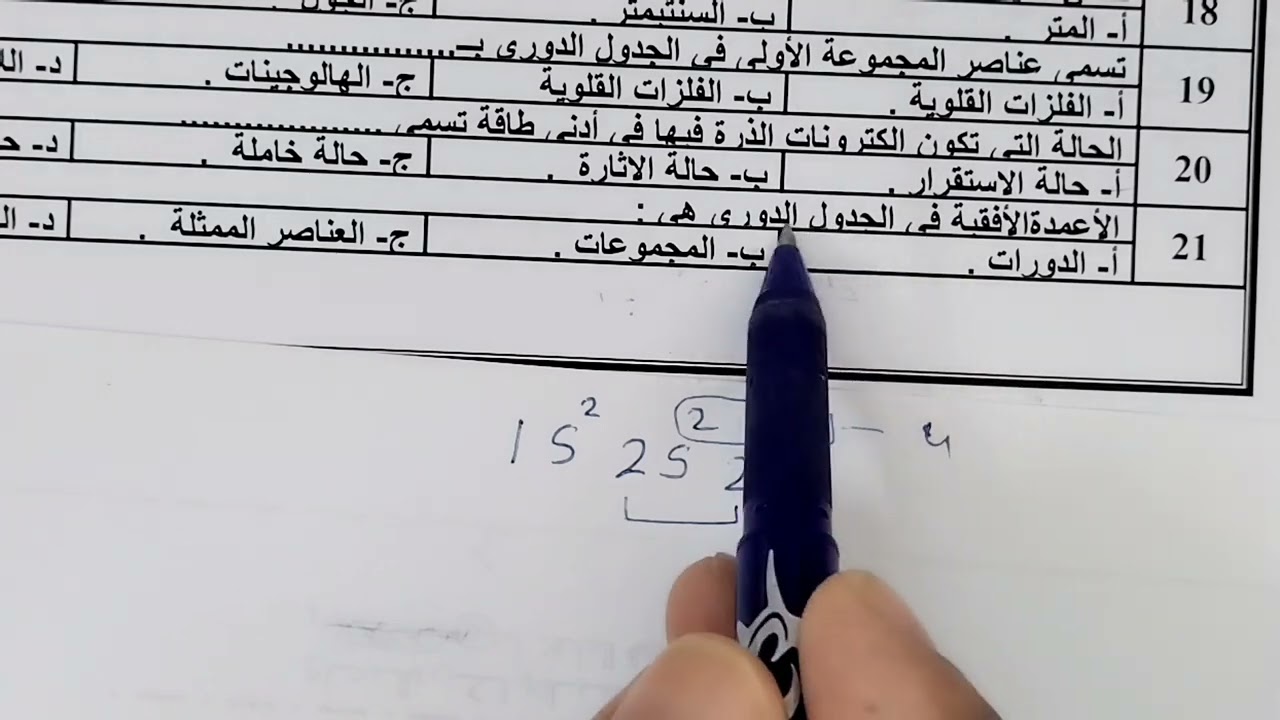 18
أ- المتر .
ب- السنتيمتر .
19
تسمى عناصر المجموعة الأولى في الجدول الدوري بـ..................
أ- الفلزات القلوية .
ب- الفلزات القلوية
ج- الهالوجينات .
د-
20
الحالة التي تكون الكترونات الذرة فيها في أدنى طاقة تسمى ..................
أ- حالة الاستقرار .
ب- حالة الاثارة .
ج- حالة خاملة .
د-
21
الأعمدةالأفقية في الجدول الدوري هي :
أ- الدورات .
ب- المجموعات .
ج- العناصر الممثلة .
د-
1S² 2S² 2